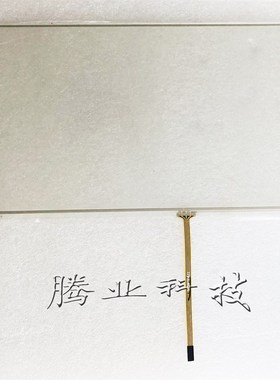 腾业科技